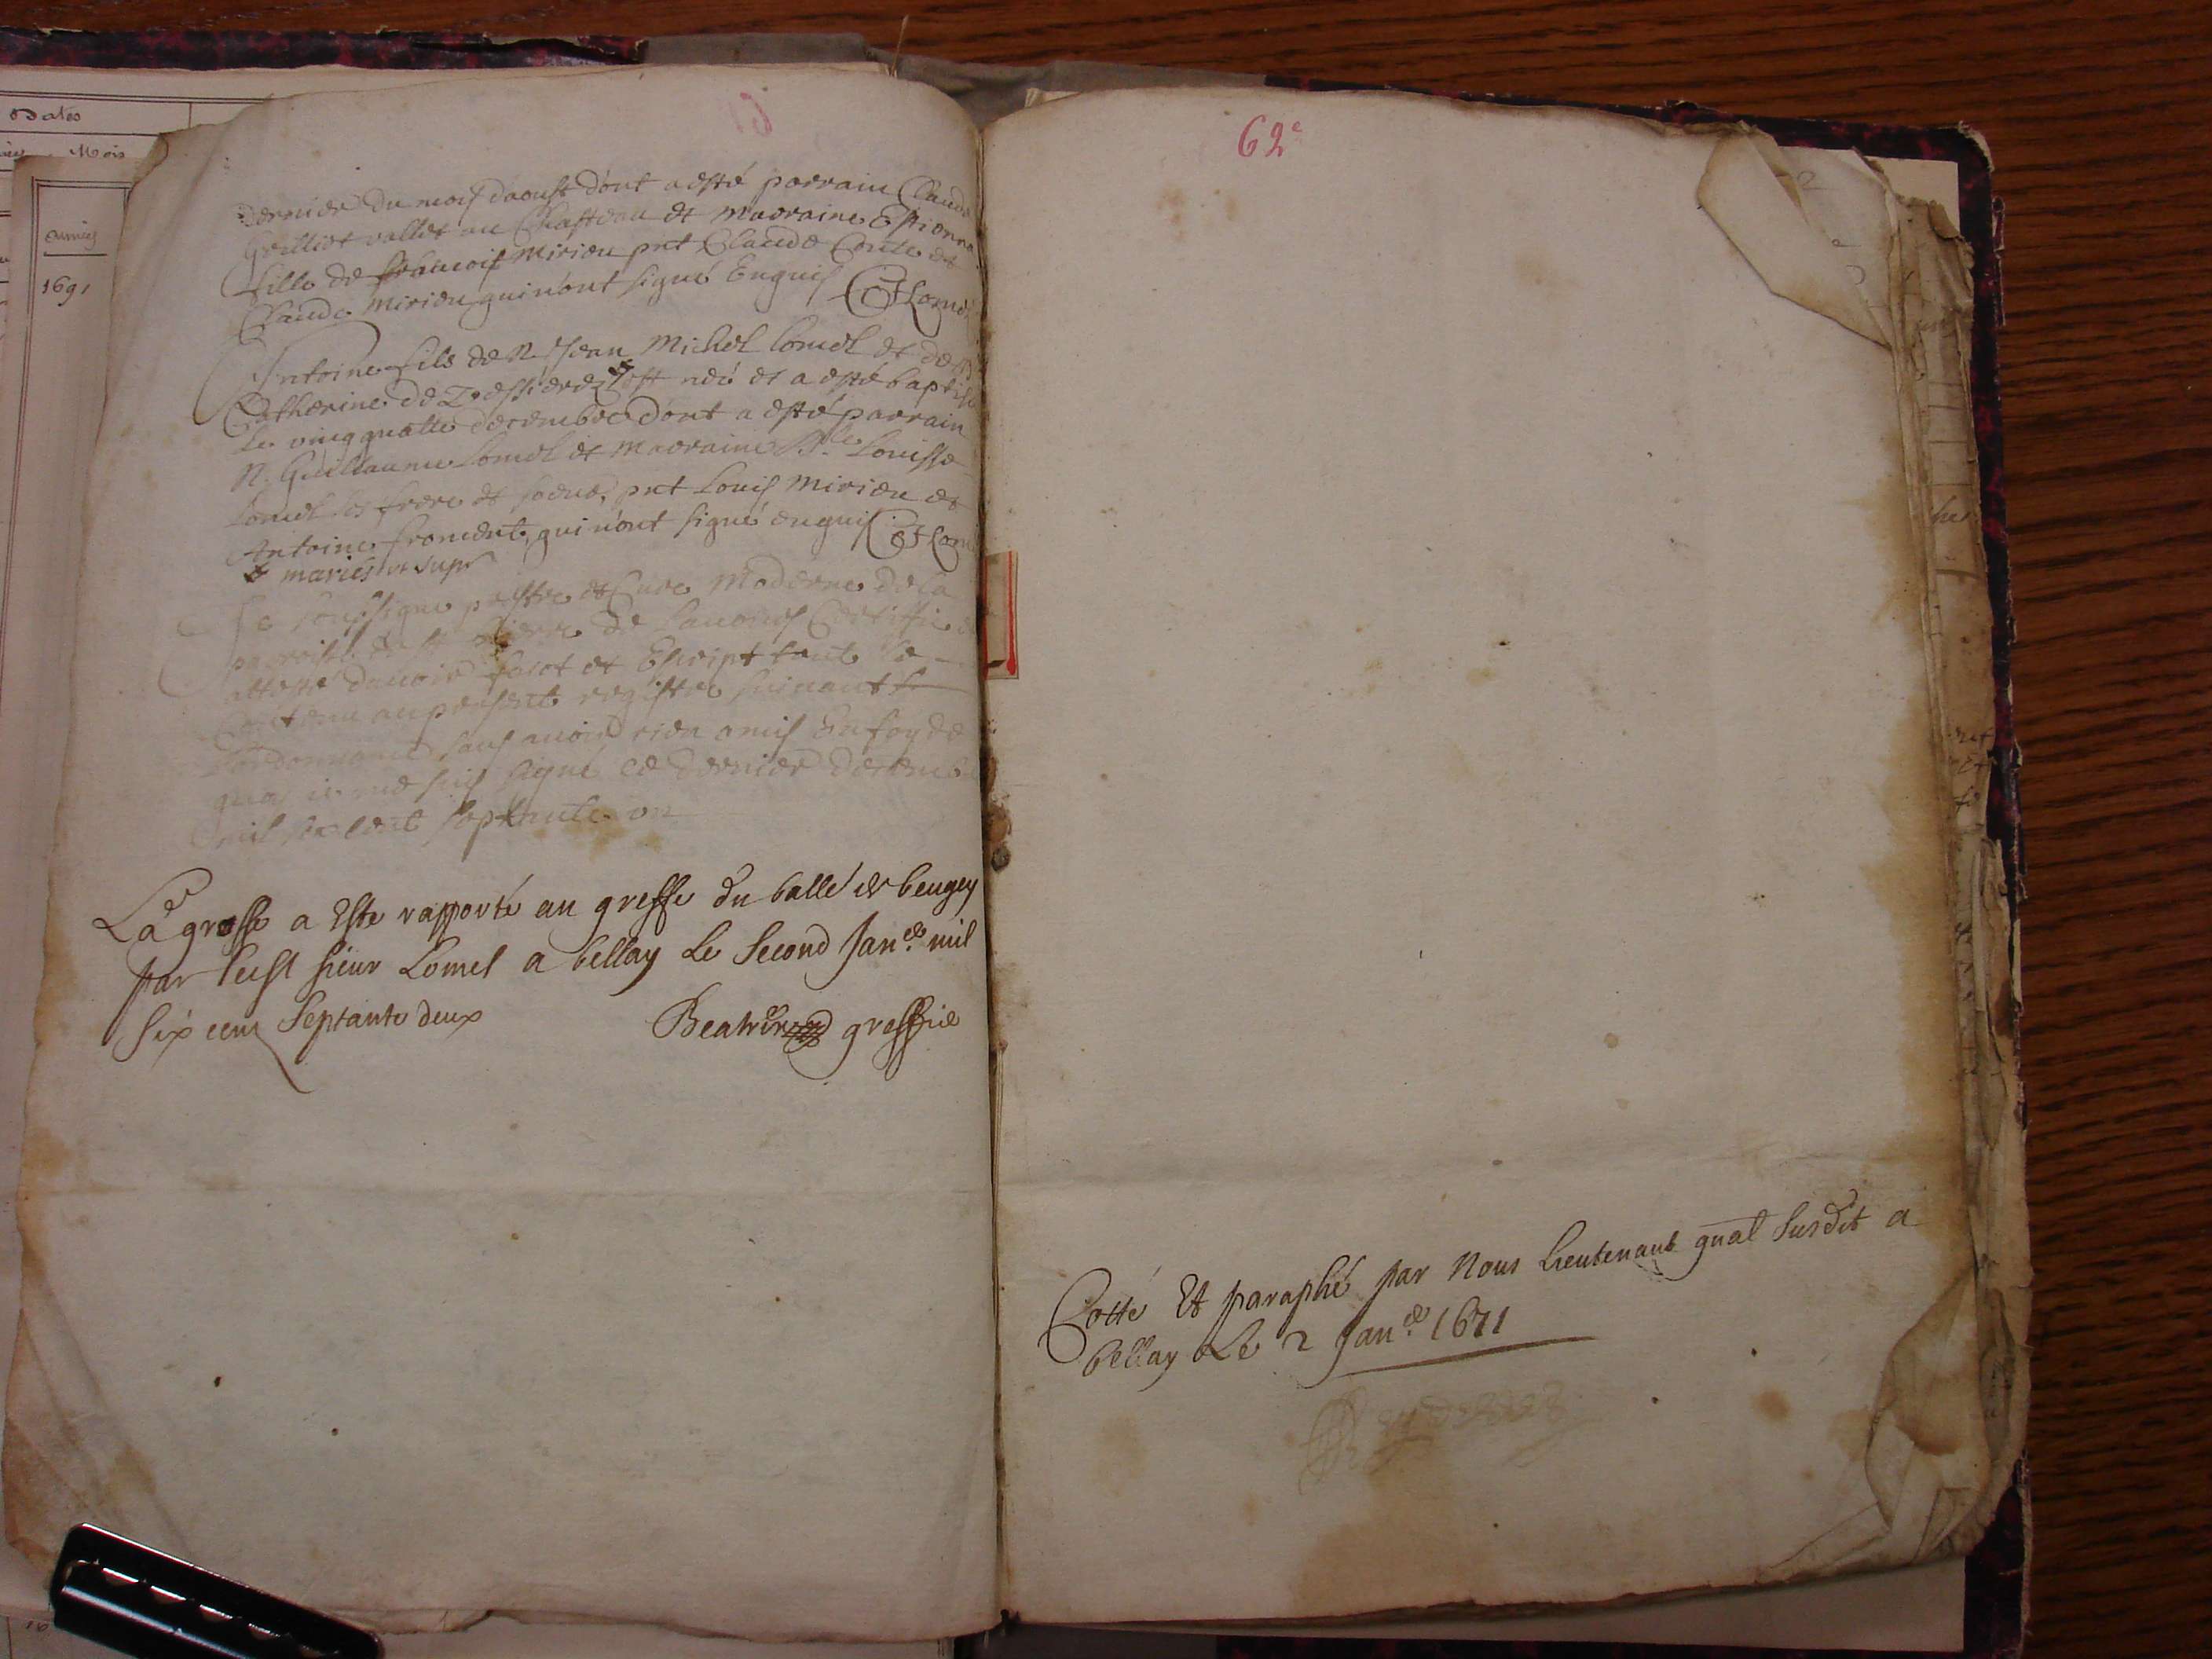 Dates
Mois
années
1691
dernier du mois daoust dont a esté parrain Claude
Grilliet vallet au Chasteau et marraine Estienna
fille de francois Mirieu pnt Claude Conte et
Claude Mirieu qui n'ont signé Enquis
Antoine fils de N. Jean Michel Comel et de
Catherine de est née et a esté baptisé
Le vingt quatre decembre dont a esté parrain
N. Guillaume Lomel et marraine Dlle Louisse
Lomel les frere et soeur, pnt Louis Mirieu et
Antoine froment, qui n'ont signé enquis
mariés ut supr
Je soussigné prestre et Curé Moderne de la
parroisse de St pierre de Certiffie
atteste d'avoir faict et Escript tout le
Contenu au present registre suivant
l'ordonnance sans avoir rien omis En foy de
quoy je me suis signé ce dernier decemb
mil six cent septante un
La grosse a Este rapporté au greffe du ballé de beugey
par led sieur Lomel a bellay Le Second Jan.er mil
Six cens Septante deux
greffie
62e
Cotté Et paraphé par Nous Lieutenant gnal susdit a
bellay Le 2 Jan.er 1671